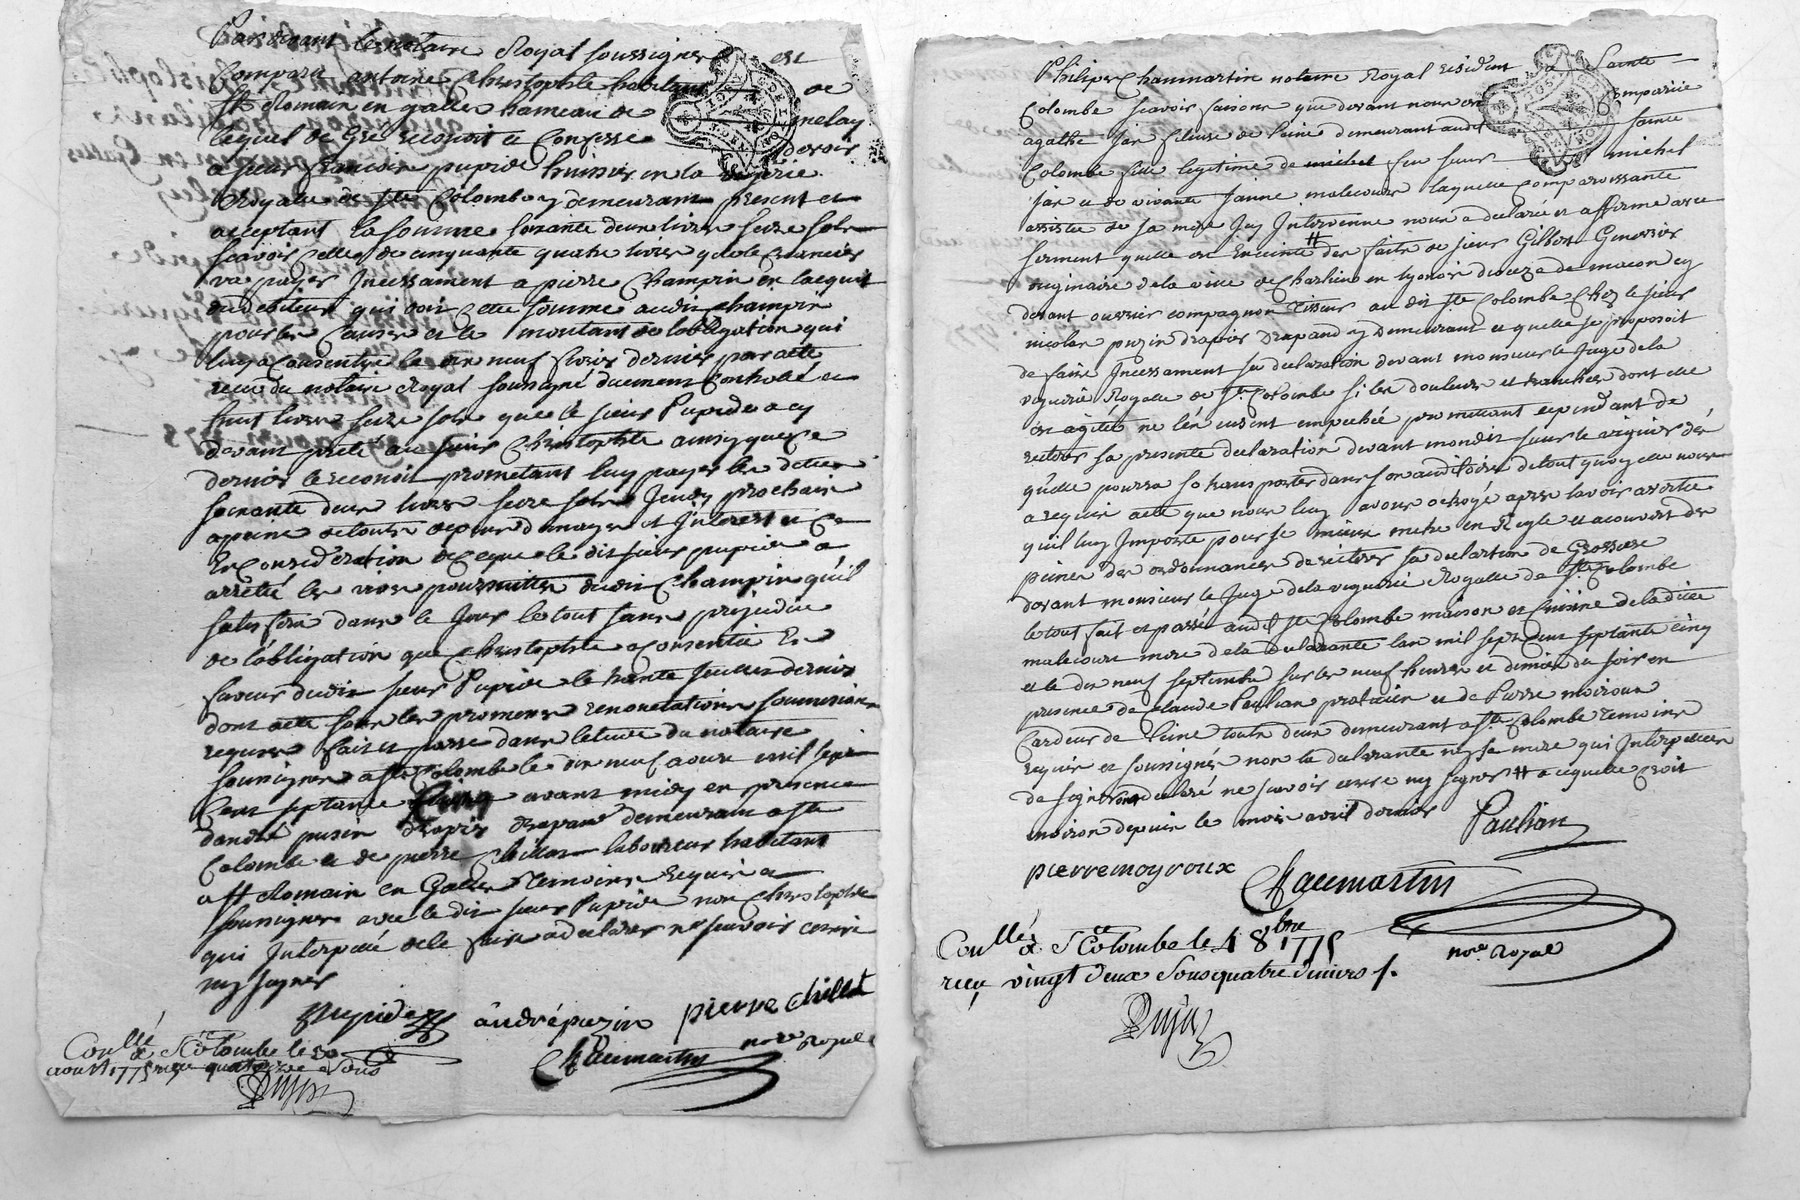 Pardevant le notaire Royal soussigné est
Comparu antoine Christophle habitant de
St Romain en galles hameau de melay
lequel de Gré reconoit et Confesse devoir
a sieur françois pupide huissier en la viguerie
Royalle de Ste Colombe y demeurant present et
acceptant la somme soixante deux livres seize sols
scavoir celle de cinquante quatre livres que le créancier
va payer Incessament a pierre Champin en lacquit
du debiteur qui doit cette somme audit champin
pour les causes et le montant de lobbligation qui
luy a consentie le dix neuf fevrier dernier par acte
recu du notaire Royal soussigné duement controllé et
huit livres seize sols que le sieur Pupide a cy
devant preté au sieur Christophle ainsy que ce
dernier le reconoit promettant luy payer les dittes
soixante deux livres seize sols Jeudy prochain
a peine de tous depens domages et Interest et ce
En Consideration de ce que le dit sieur pupide a
arretté les vives poursuittes dudit Champin qu'il
satisfera dans le Jour le tout sans prejudice
de lobbligation que Christophle a consentie En
faveur dudit sieur Pupide le trente Juillet dernier
dont acte sous les promesses renonciations soumissions
requises fait et passé dans letude du notaire
soussigné a Ste Colombe le dix neuf aoust mil sept
Cent septante Cinq avant midy en presence
dandré puzin drapier drapant demeurant a Ste
Colombe et de pierre Chillet laboureur habitant
a St Romain en Galles temoins requis et
soussignés avec le dit sieur Pupide non Christophle
qui Interpellé de le faire a declaré ne scavoir ecrire
ny signer
pupide andrépuzin pierre chillet
Conllé a Ste Colombe le 30 Chaumartin nore Royal
aoust 1775 reçu quatorze sous
Dujas
Philipe Chaumartin notaire Royal resident a Sainte
Colombe scavoir faisons que devant nous est Compariie
agathe Jar fileuse de laine demeurant audit Sainte
Colombe fille legitime de michel feu sieur michel
Jar et de vivante Janne malecour laquelle comparoissante
assistée de sa mere Icy Intervenue nous a declaré et affirmé avec
serment quelle est Enceinte # des faits de sieur Gilbert Genessier
originaire de la ville de Charlieu en lyonois dioceze de macon cy
devant ouvrier compagnon tisseur audit Ste Colombe chez le sieur
nicolas puzin drapier drapand y demeurant et quelle se proposoit
de faire Incessament sa declaration devant monsieur le Juge de la
viguerie Royalle de Ste Colombe si les douleurs et tranchées dont elle
est agitée ne len eussent empechée promettant cependant de
reiterer sa presente declaration devant mondit sieur le viguier dès
qu'elle pourra se transporter dans son auditoire de tout quoy elle nous
a requis acte que nous luy avons octroyé apres lavoir avertie
qu'il luy Importe pour se mieux mettre en Regle et a couvert des
peines des ordonnances de reiterer sa declaration de Grossesse
devant monsieur le Juge de la viguerie Royalle de Ste Colombe
le tout fait et passé audit Ste Colombe maison et Cuisine de la ditte
malecour mere de la declarante lan mil sept Cent septante cinq
et le dix neuf septembre sur les neuf heures et demies du soir en
presence de Claude Paulian praticien et de Pierre moiroux
Cardeur de laine touts deux demeurant a Ste Colombe temoins
requis et soussignés non la declarante ny sa mere qui Interpellées
de signer ont declaré ne scavoir ecrire ny signer # a ce quelle croit
environ depuis le mois avril dernier Paulian
pierre moyroux Chaumartin
nore Royal
Conllé a Ste Colombe le 4 8bre 1775
reçu vingt deux sous quatre deniers
Dujas